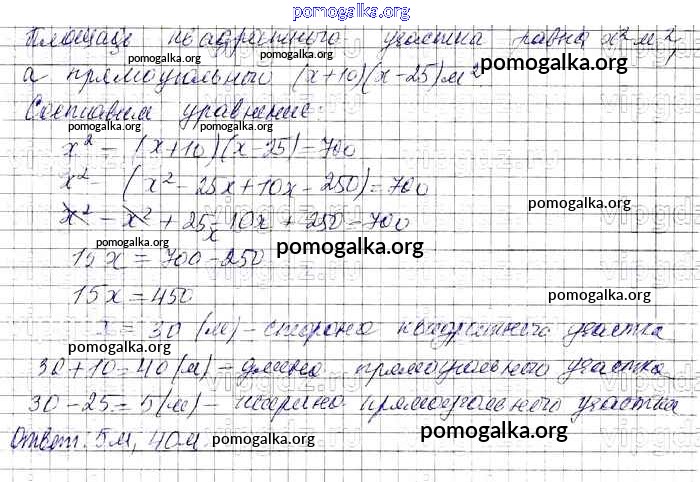 pomogalka.org
Площадь квадратного участка равна x² м²,
а прямоугольного (x+10)(x-25) м²
Составим уравнение:
x² - (x+10)(x-25)=700
x² - (x² - 25x+10x - 250)=700
x² - x² + 25x - 10x + 250 = 700
15x = 700-250
15x = 450
x = 30 (м) - сторона квадратного участка
30+10=40 (м) - длина прямоугольного участка
30-25=5 (м) - ширина прямоугольного участка
Ответ: 5м, 40м.
pomogalka.org
pomogalka.org
pomogalka.org
pomogalka.org
pomogalka.org
pomogalka.org
pomogalka.org
pomogalka.org
pomogalka.org
pomogalka.org
pomogalka.org
pomogalka.org